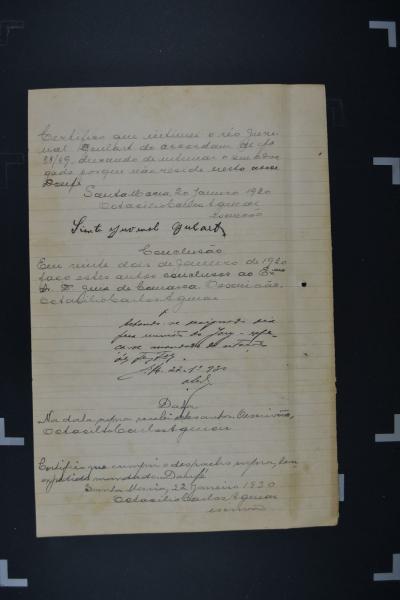 Certifico que intimei o réo Juve-
nal Gulart do accordam de fo
38/39, deixando de intimar o advo-
gado porque não reside nesta
Doufé
Santa Maria, 20 Janeiro 1920
Octacilio Carlos Aguiar
escrivão
Siente Juvenal Gulart
Conclusão
Em vinte dois de Janeiro de 1920
faço estes autos conclusos ao Exmo
Sr. Dr. Juiz de Comarca. O escrivão,
Octacilio Carlos Aguiar
designado dia
para reunião do Jury
se mandado de
22-1º-920
Data
Na data supra recebi estes autos. O escrivão,
Octacilio Carlos Aguiar
Certifico que cumpri o despacho supra,
expedido mandado. Doufé
Santa Maria, 22 Janeiro 1920
Octacilio Carlos Aguiar
escrivão